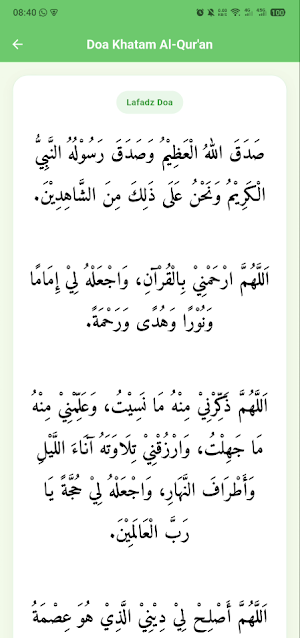 08:40
Doa Khatam Al-Qur'an
Lafadz Doa
صَدَقَ اللهُ الْعَظِيْمُ وَصَدَقَ رَسُوْلُهُ النَّبِيُّ
الْكَرِيْمُ وَنَحْنُ عَلَى ذَلِكَ مِنَ الشَّاهِدِيْنَ.
اَللَّهُمَّ ارْحَمْنِيْ بِالْقُرْآنِ، وَاجْعَلْهُ لِيْ إِمَامًا
وَنُوْرًا وَهُدًى وَرَحْمَةً.
اَللَّهُمَّ ذَكِّرْنِيْ مِنْهُ مَا نَسِيْتُ، وَعَلِّمْنِيْ مِنْهُ
مَا جَهِلْتُ، وَارْزُقْنِيْ تِلَاوَتَهُ آنَاءَ اللَّيْلِ
وَأَطْرَافَ النَّهَارِ، وَاجْعَلْهُ لِيْ حُجَّةً يَا
رَبَّ الْعَالَمِيْنَ.
اَللَّهُمَّ أَصْلِحْ لِيْ دِيْنِيْ الَّذِيْ هُوَ عِصْمَةُ